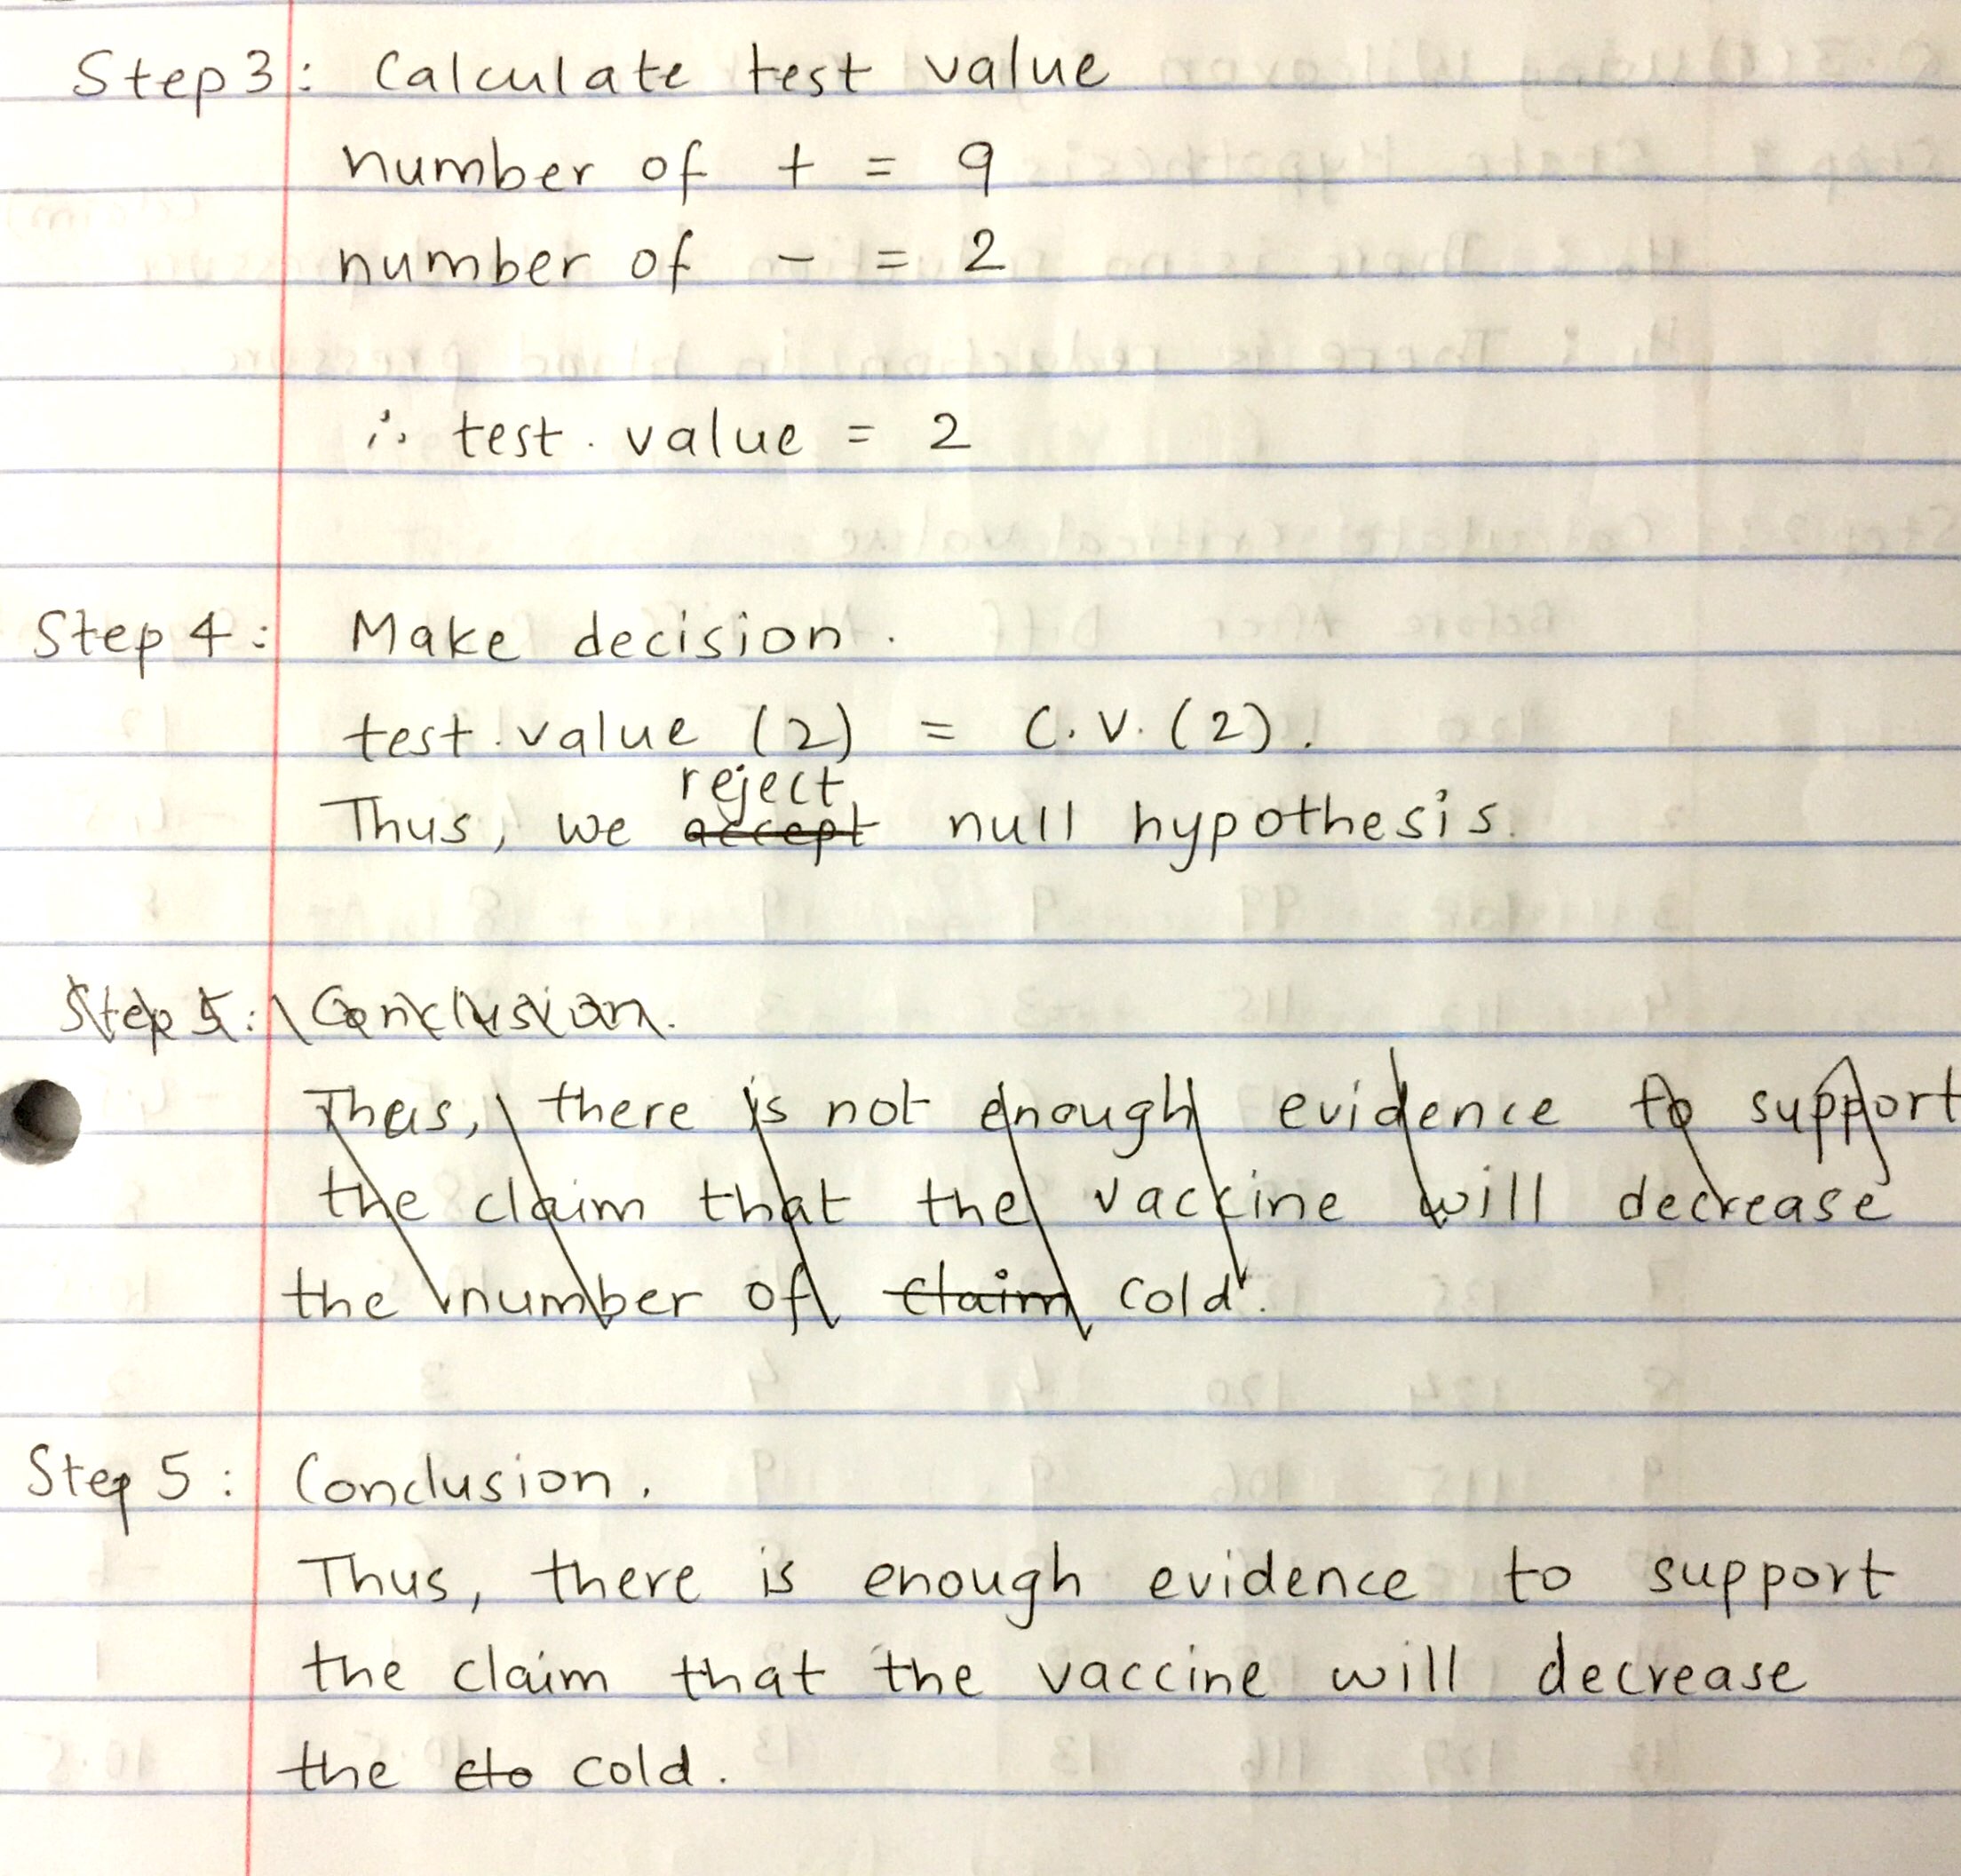 Step 3: Calculate test value
number of + = 9
number of - = 2
∴ test. value = 2
Step 4: Make decision.
test. value (2) = C.V. (2).
reject
Thus, we accept null hypothesis.
Step 5: Conclusion.
Thus, there is not enough evidence to support
the claim that the vaccine will decrease
the number of claim cold.
Step 5: Conclusion.
Thus, there is enough evidence to support
the claim that the vaccine will decrease
the clo cold.